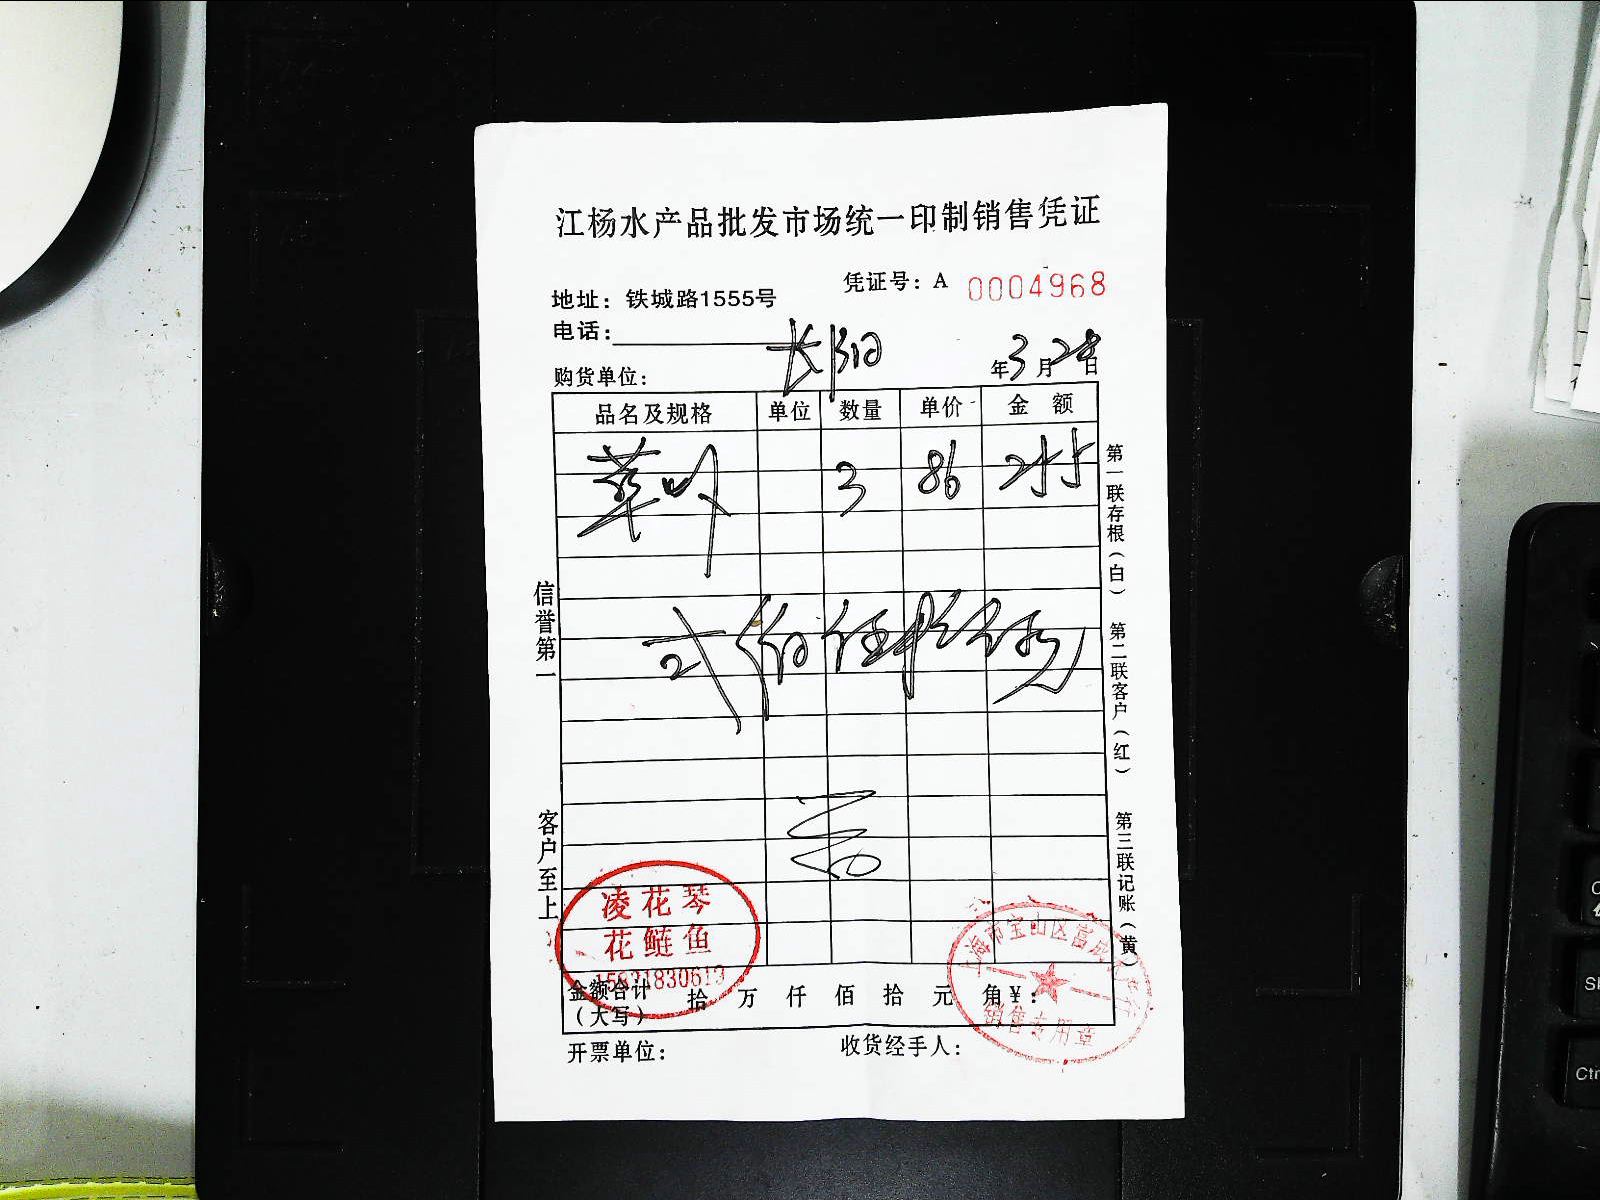 江杨水产品批发市场统一印制销售凭证
凭证号：A 0004968
地址：铁城路1555号
电话：
长阳
购货单位：
年3月28日
品名及规格 单位 数量 单价 金 额
3 86
信誉第一
客户至上
第一联存根（白）
第二联客户（红）
第三联记账（黄）
凌花琴
花鲢鱼
金额合计
（大写）
拾 万 仟 佰 拾 元 角 ¥：
销售专用章
开票单位：
收货经手人：